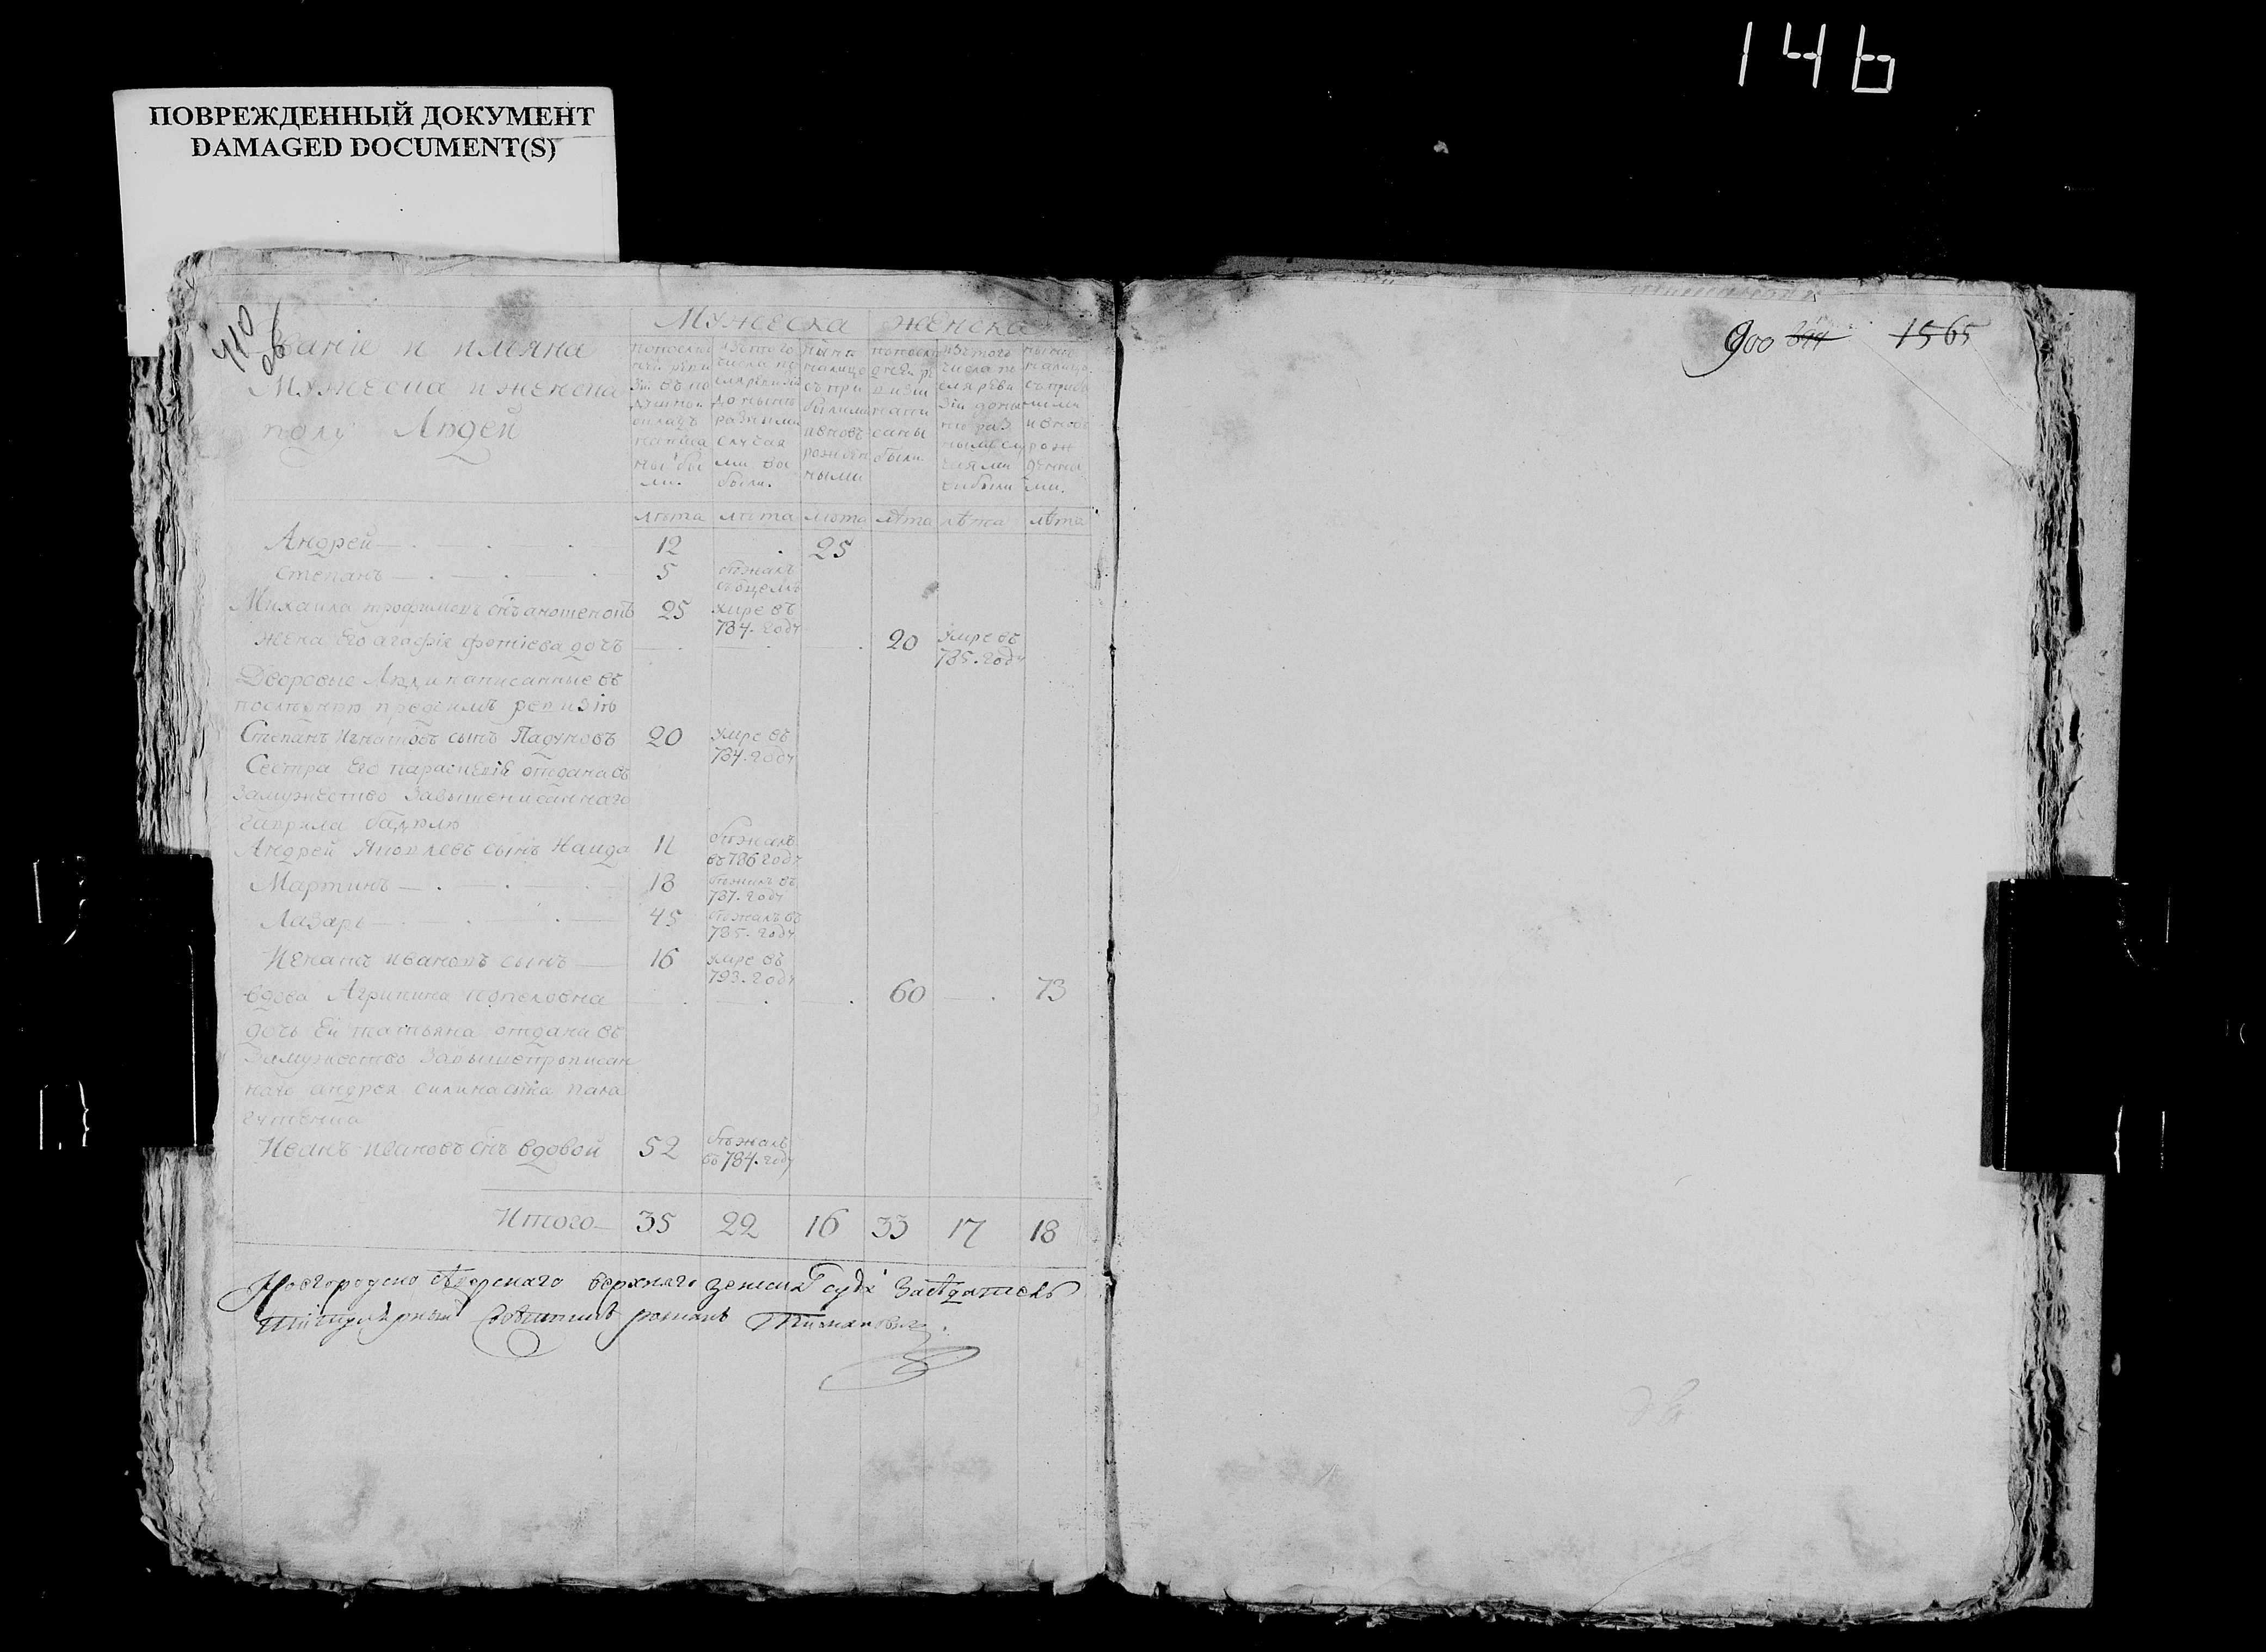 146
ПОВРЕЖДЕННЫЙ ДОКУМЕНТ
DAMAGED DOCUMENT(S)
900 1565
Мужеска женска
звание и имяна
Мужеска и женска
полу Людей
попоследней ревизiи въ подушной окладъ написаны были.
изъ того числа после ревизiи до ныне разными случаями выбыли.
ныне налицо съ прибылыми и вновь рожденными
попоследней ревизiи написаны были
изъ того числа после ревизiи доныне разными случаями выбыли
ныне налицо съ прибылыми и вновь рожденными.
лѣта лѣта лѣта лѣта лѣта лѣта
Андрей 12 25
Степанъ 5 бѣжалъ съ отцемъ
Михаила трофимовъ снъ 25 умре въ 784. году
жена Его агафiя фотiева дочь 20 умре въ 785. году
Дворовые Люди написанные въ
последнею пред симъ ревизiю
Степанъ Игнатовъ сынъ Падуновъ 20 умре въ 784. году
Сестра Его параскевiя отдана въ
замужество завышеписаннаго
гаврила
Андрей Яковлевъ сынъ 11 бѣжалъ въ 786 году
Мартинъ 18 бѣжалъ въ 787. году
Лазарь 45 бѣжалъ въ 785. году
Иванъ ивановъ сынъ 16 умре въ 793. году
вдова Агрипина 60 73
дочь Ей татьяна отдана въ
Замужество Завышепрописан
наго андрея силина сна
Иванъ ивановъ снъ вдовой 52 бѣжалъ въ 784. году
Итого 35 22 16 33 17 18
Новгородско сѣверскаго верхняго земскаго суда Засѣдатель
титулярный совѣтникъ романъ